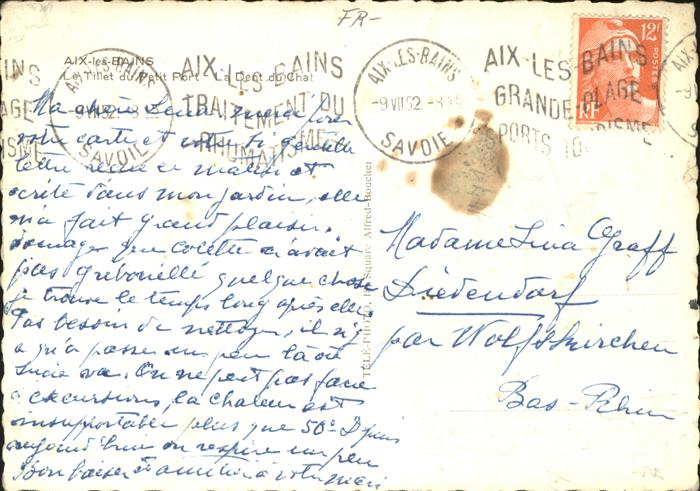 FR-
AIX-les-BAINS
Le Tillet du Petit Port - La Dent du Chat
AIX-LES-BAINS
TRAITEMENT DU
RHUMATISME
AIX-LES-BAINS
-9 VII 52
SAVOIE
AIX-LES-BAINS
GRANDE PLAGE
SPORTS TOURISME
12F
POSTES
RF
Ma chère Lina, merci pour
votre carte et votre si gentille
lettre reçue ce matin et
écrite dans mon jardin, elle
m'a fait grand plaisir,
dommage que Colette n'avait
pas gribouillé quelque chose
je trouve le temps long après elle.
Pas besoin de nettoyer, il n'y
a qu'à passer un peu là où
Lucie va. On ne peut pas faire
d'excursions, la chaleur est
insupportable plus que 50° Depuis
aujourd'hui on respire un peu
Bon baiser et amitiés à votre mari
TÉLÉ-PHOTO, Square Alfred-Boucher
Madame Lina Graff
Diedendorf
par Wolfskirchen
Bas-Rhin